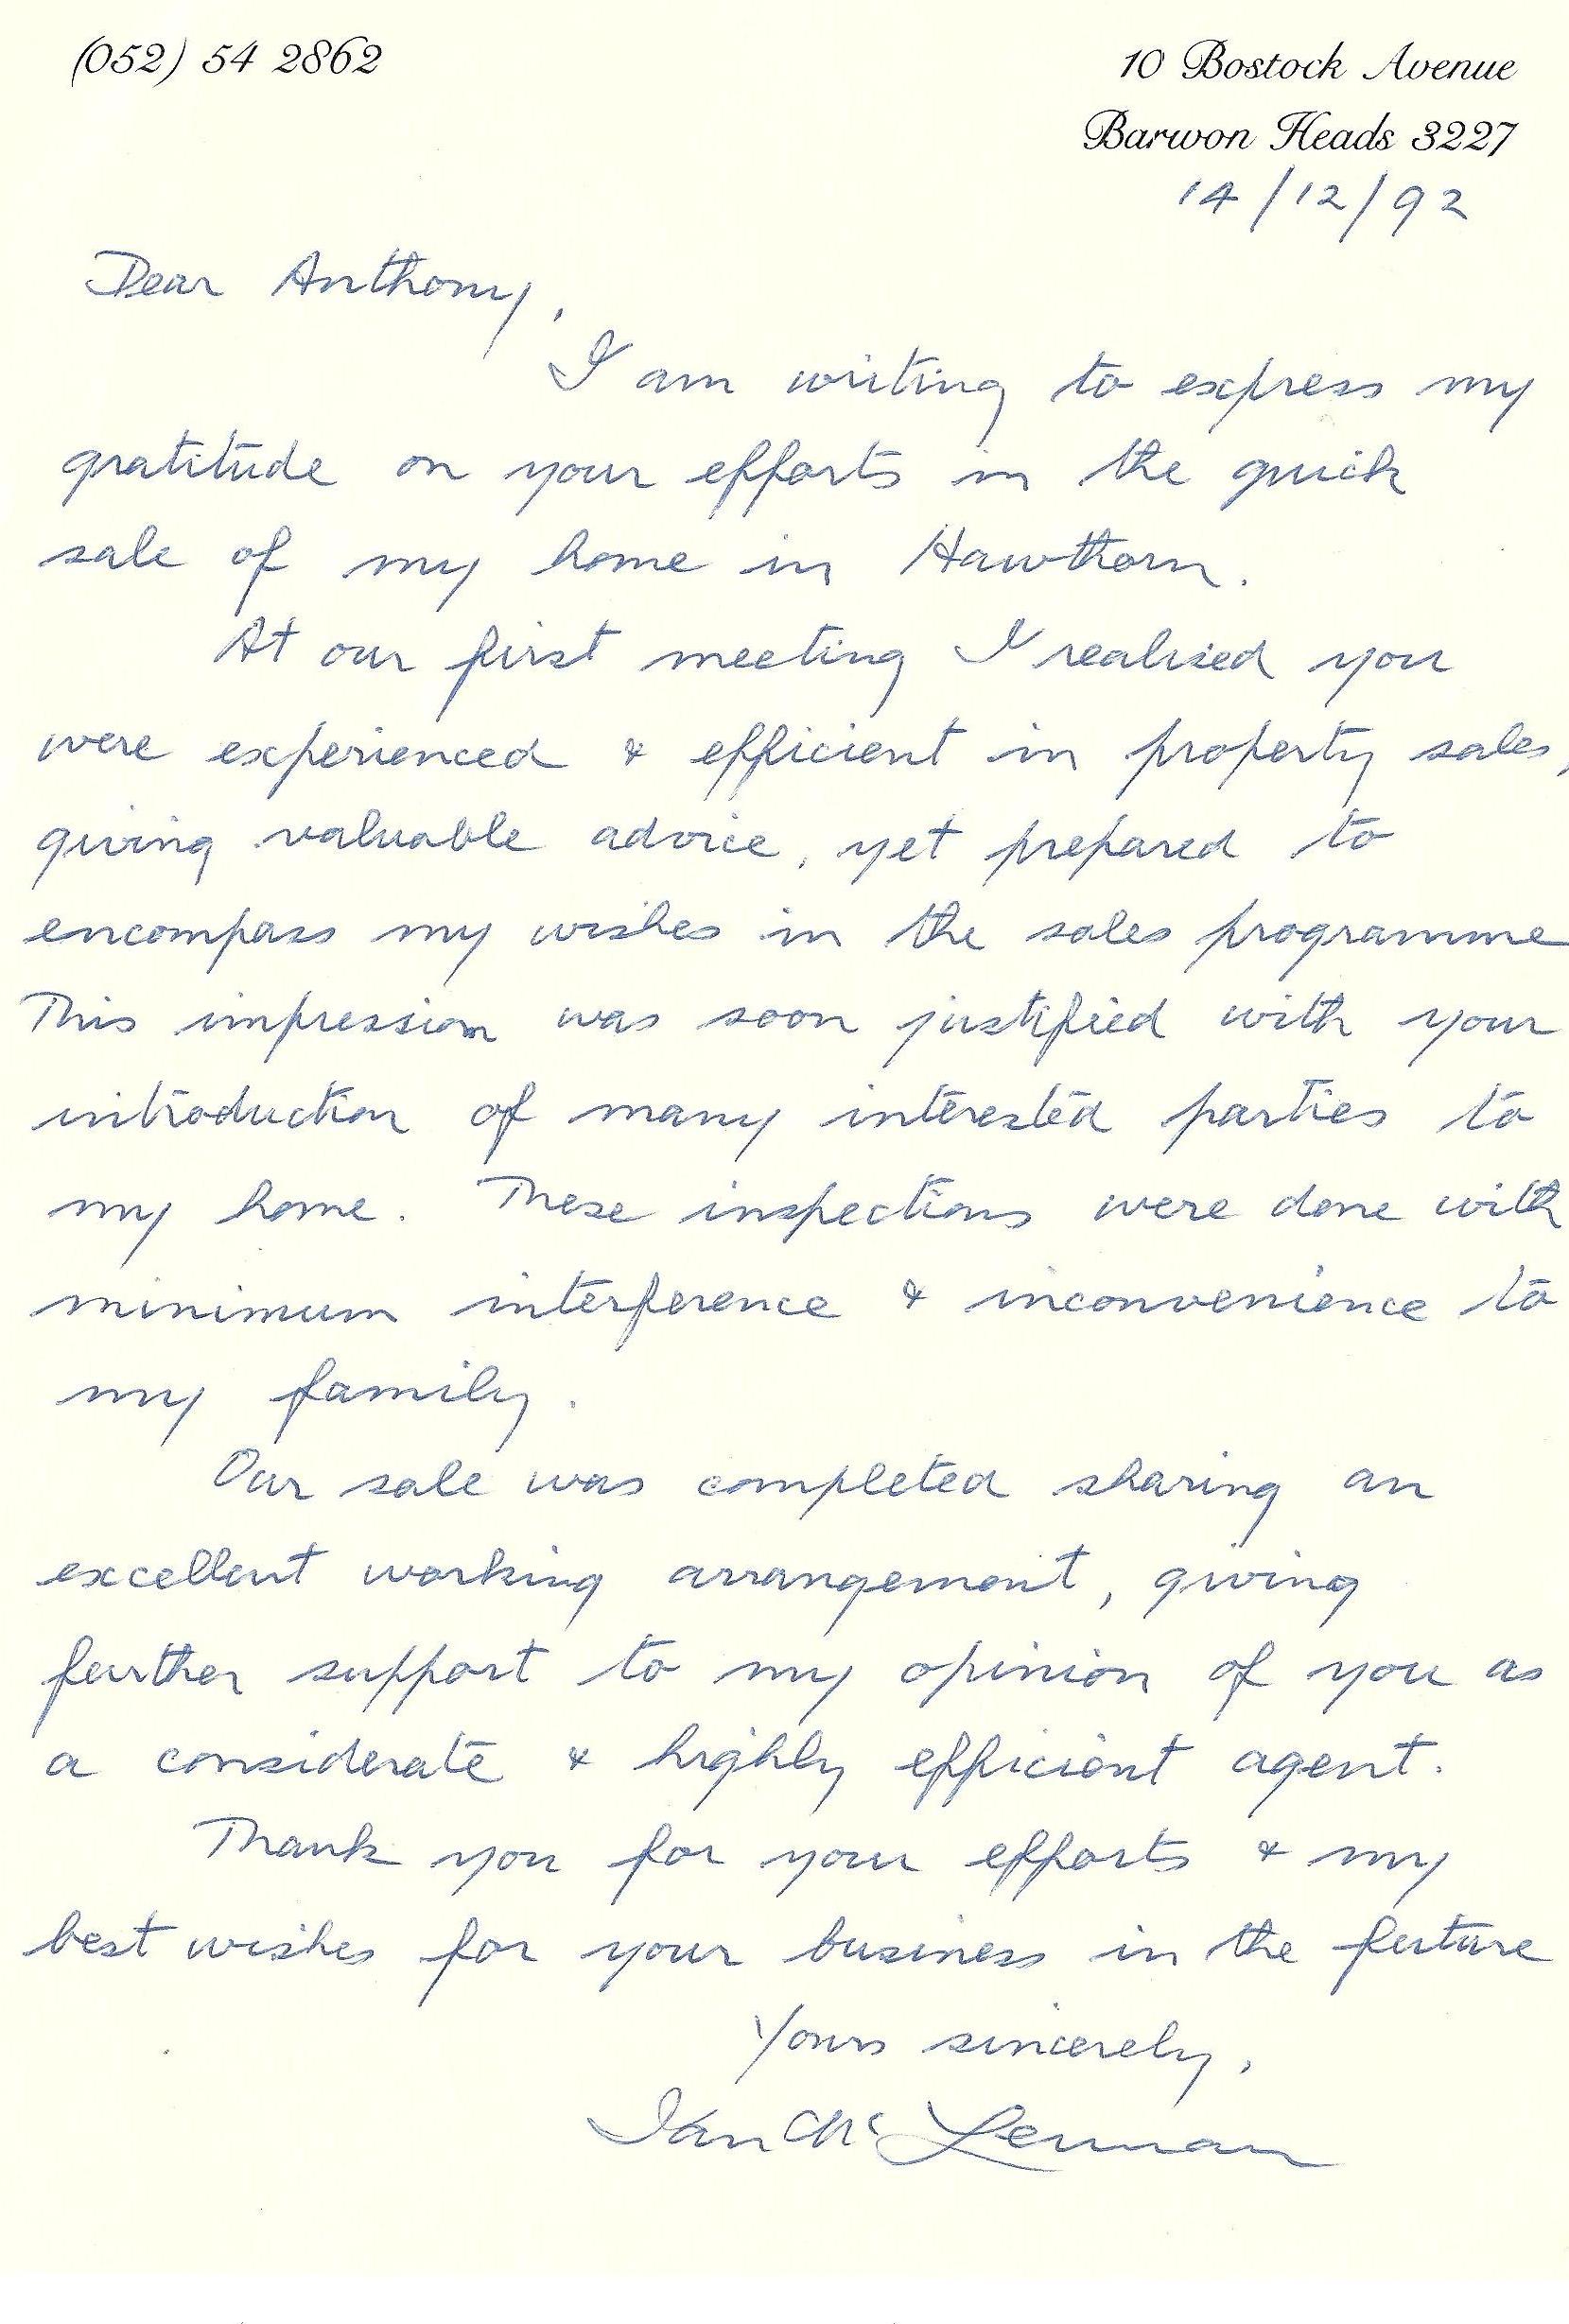 (052) 54 2862
10 Bostock Avenue
Barwon Heads 3227
14/12/92
Dear Anthony,
I am writing to express my
gratitude on your efforts in the quick
sale of my home in Hawthorn.
At our first meeting I realised you
were experienced & efficient in property sales,
giving valuable advice, yet prepared to
encompass my wishes in the sales programme
This impression was soon justified with your
introduction of many interested parties to
my home. These inspections were done with
minimum interference & inconvenience to
my family.
Our sale was completed sharing an
excellent working arrangement, giving
further support to my opinion of you as
a considerate & highly efficient agent.
Thank you for your efforts & my
best wishes for your business in the future
Yours sincerely,
Ian McLennan